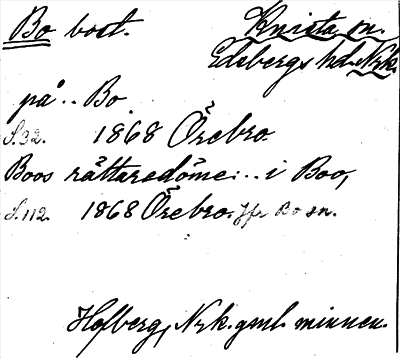 Bo bost. Knista sn.
Edsbergs hd. Nrk.
på .. Bo
S. 32. 1868 Örebro.
Boos rättaredöme .. i Boo,
S. 112. 1868 Örebro. Jfr Bo sn.
Hofberg, Nrk. gml. minnen.